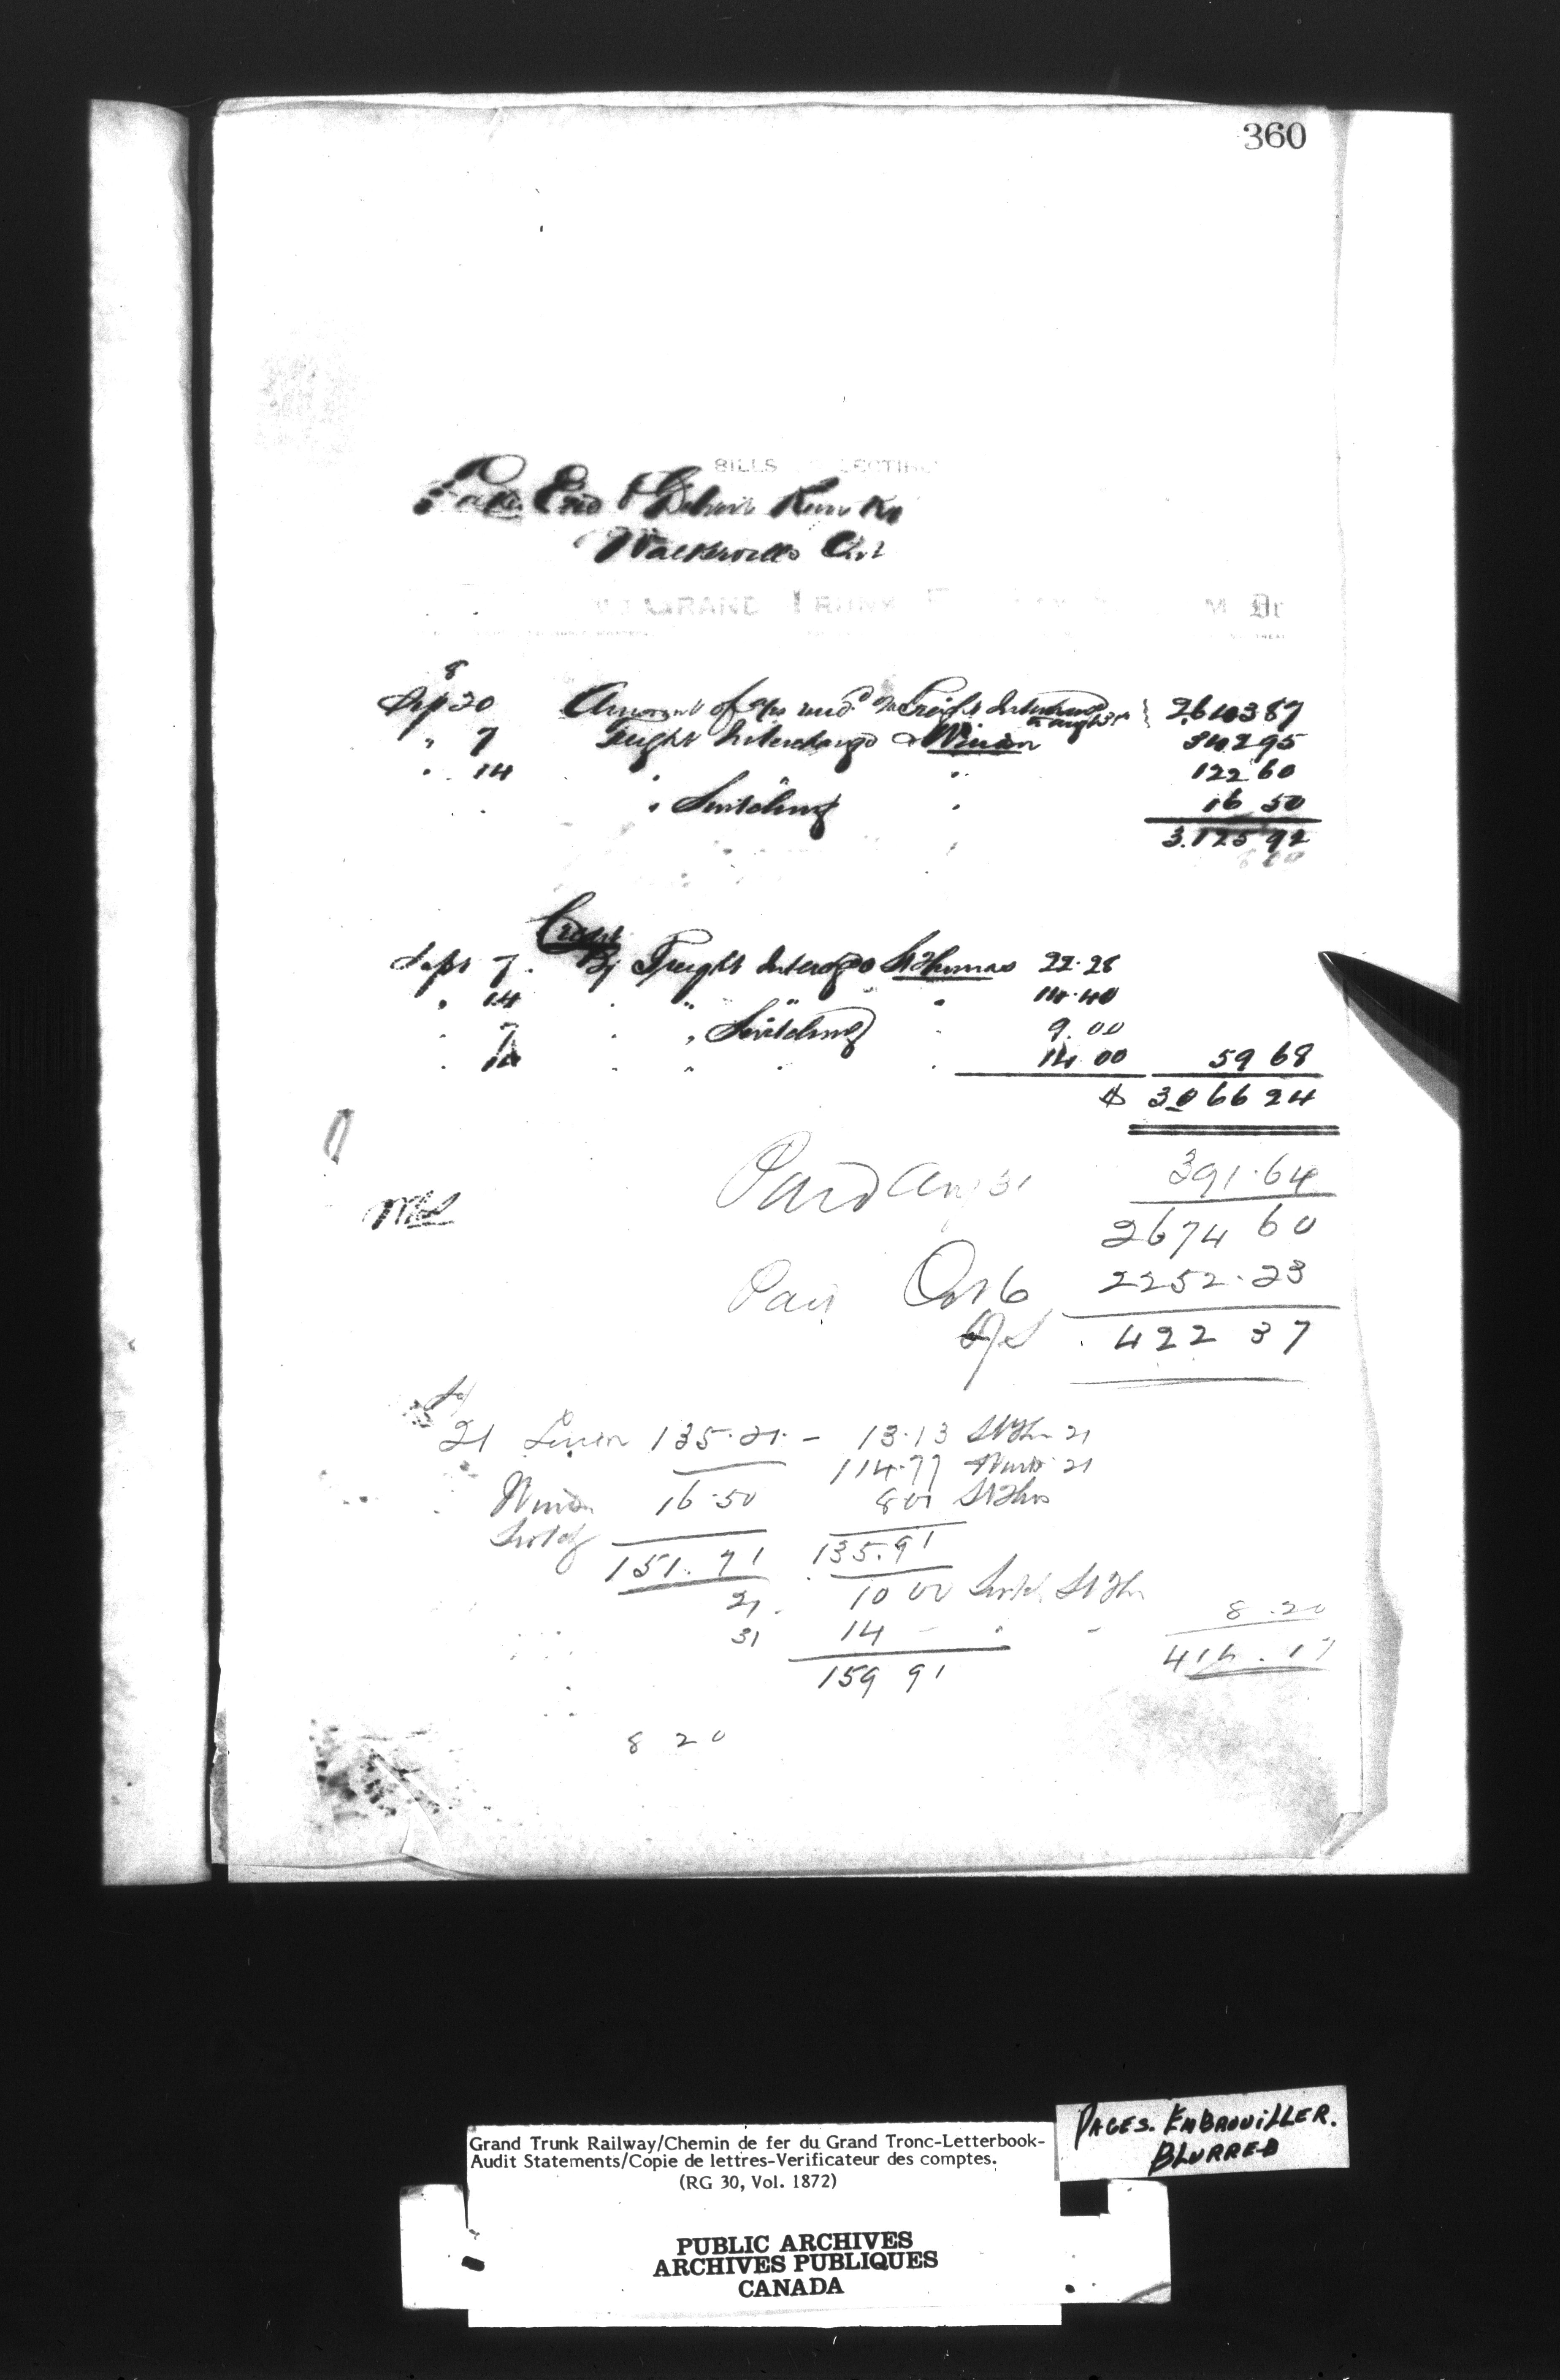 360
BILLS
Lake Erie & Detroit River Ry
Walkerville Ont
GRAND TRUNK M Dr
8
Sep 20 Amount of a/c rend Freight Interchange 2,643 87
" 7 Freight Interchange Windsor 342 95
" 14 " " " 122 60
" Switching " 16 50
3.125 92
Credit
Sept 7. By Freight Interchge St Thomas 22.28
" 14 " " " 14.40
" 7 " Switching " 9.00
" 14 " " " 14 00 59 68
$ 3066 24
Paid Aug 31 391.64
2674 60
Paid Oct 6 2252.23
422 37
21 135.21 - 13.13 St Th 21
114.77 21
Windsor 16.50 8 01 St Thos
151.71 135.91
21 10 00 St Th
31 14 - " -
8.20
159 91
8 20
Grand Trunk Railway/Chemin de fer du Grand Tronc-Letterbook-
Audit Statements/Copie de lettres-Verificateur des comptes.
(RG 30, Vol. 1872)
PAGES. EMBROUILLER.
BLURRED
PUBLIC ARCHIVES
ARCHIVES PUBLIQUES
CANADA